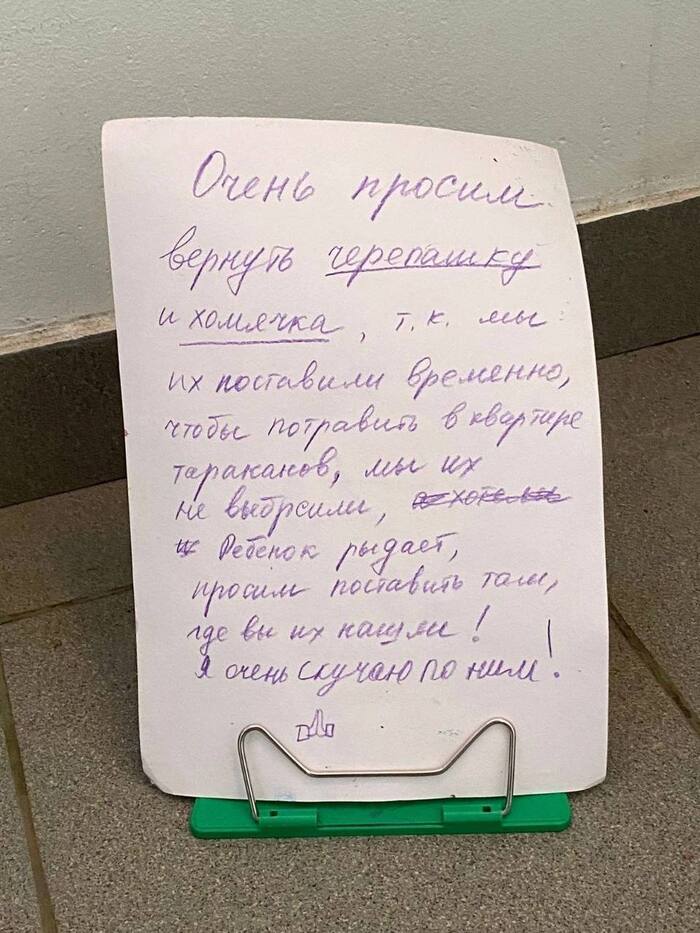 Очень просим
вернуть черепашку
и хомячка, т.к. мы
их поставили временно,
чтобы потравить в квартире
тараканов, мы их
не выбрсили,
Ребенок рыдает,
просим поставить там,
где вы их нашли!
Я очень скучаю по ним!